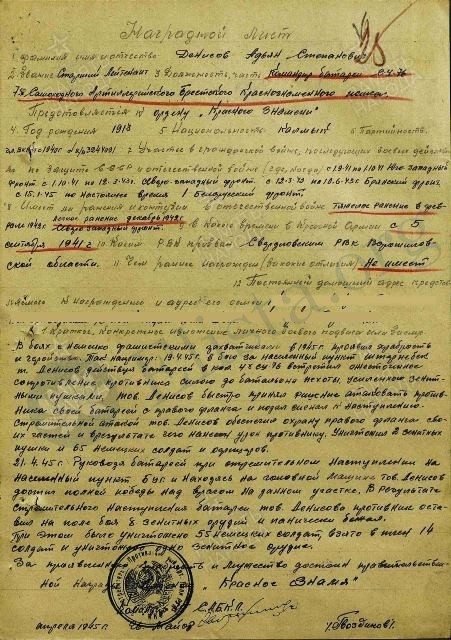 Наградной лист
1 Фамилия имя и отчество Денисов Адьян Степанович
2. Звание Старший Лейтенант 3 Должность, часть Командир батареи СУ-76
7го Самоходного Артиллерийского Брестского Краснознаменного полка.
Представляется к ордену „Красного Знамени"
4. Год рождения 1918 5 Национальность Калмык 6 Партийность
7. Участие в гражданской войне, последующих боевых действиях
по защите СССР и отечественной войне (где, когда) с 1.9.41 по 1.10.41 Юго Западный
фронт. с 1.10.41 по 12.3.43г. Северо-западный фронт. с 12.3.43 по 10.6.43г. Брянский фронт,
с 15.1.45 по настоящее время 1 Белорусский фронт
8 Имеет ли ранения и контузии в отечественной войне Тяжелое ранение в фев-
рале 1942г. легкое ранение декабрь 1942г. Северо западный фронт. 9 С какого времени в Красной Армии с 5
сентября 1941г 10 Каким РВК призван Свердловским РВК Ворошилов-
ской области. 11 Чем ранее награжден (за какие отличия) Не имеет
12 Постоянный домашний адрес представ-
ляемого к награждению и адрес его семьи
1 Краткое, конкретное изложение личного боевого подвига или заслуг
В боях с немецко фашистскими захватчиками в 1945г. проявил храбрость
и геройство. Так например: 19.4.45г. в бою за населенный пункт
т. Денисов действуя батареей в кол 4х СУ 76 встретил ожесточенное
сопротивление противника силою до батальона пехоты усиленную зенит-
ными пушками тов. Денисов быстро принял решение атаковать против-
ника своей батареей с правого фланга и подал сигнал к наступлению.
Стремительной атакой тов. Денисов обеспечил охрану правого фланга сво-
их частей и в результате чего нанес урон противнику. Уничтожил 2 зенитных
пушки и 65 немецких солдат и офицеров.
21.4.45г. Руководя батареей при стремительном наступлении на
населенный пункт и находясь на головной машине тов. Денисов
достиг полной победы над врагом на данном участке. В результате
стремительного наступления батареи тов. Денисова противник оста-
вил на поле боя 8 зенитных орудий и панически бежал.
При этом было уничтожено 55 немецких солдат, взято в плен 14
солдат и уничтожено одно зенитное орудие.
За проявленную храбрость и мужество достоин правительствен-
ной награды „Красное Знамя"
Командир САБКП.
Майор Гвоздиков
апреля 1945г.